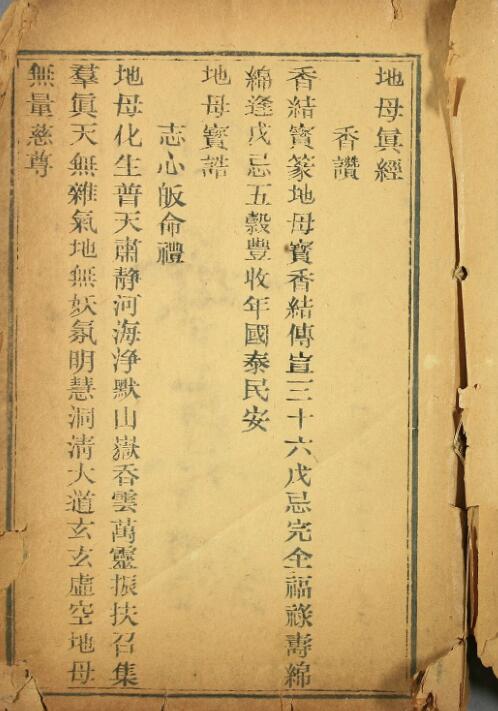 地母眞經
香讚
香結寳篆地母寳香結傳宣三十六戊忌完全福祿壽綿
綿逢戊忌五穀豐收年國泰民安
地母寳誥
志心皈命禮
地母化生普天肅靜河海淨默山嶽吞雲萬靈振扶召集
羣眞天無雜氣地無妖氛明慧洞淸大道玄玄虛空地母
無量慈尊